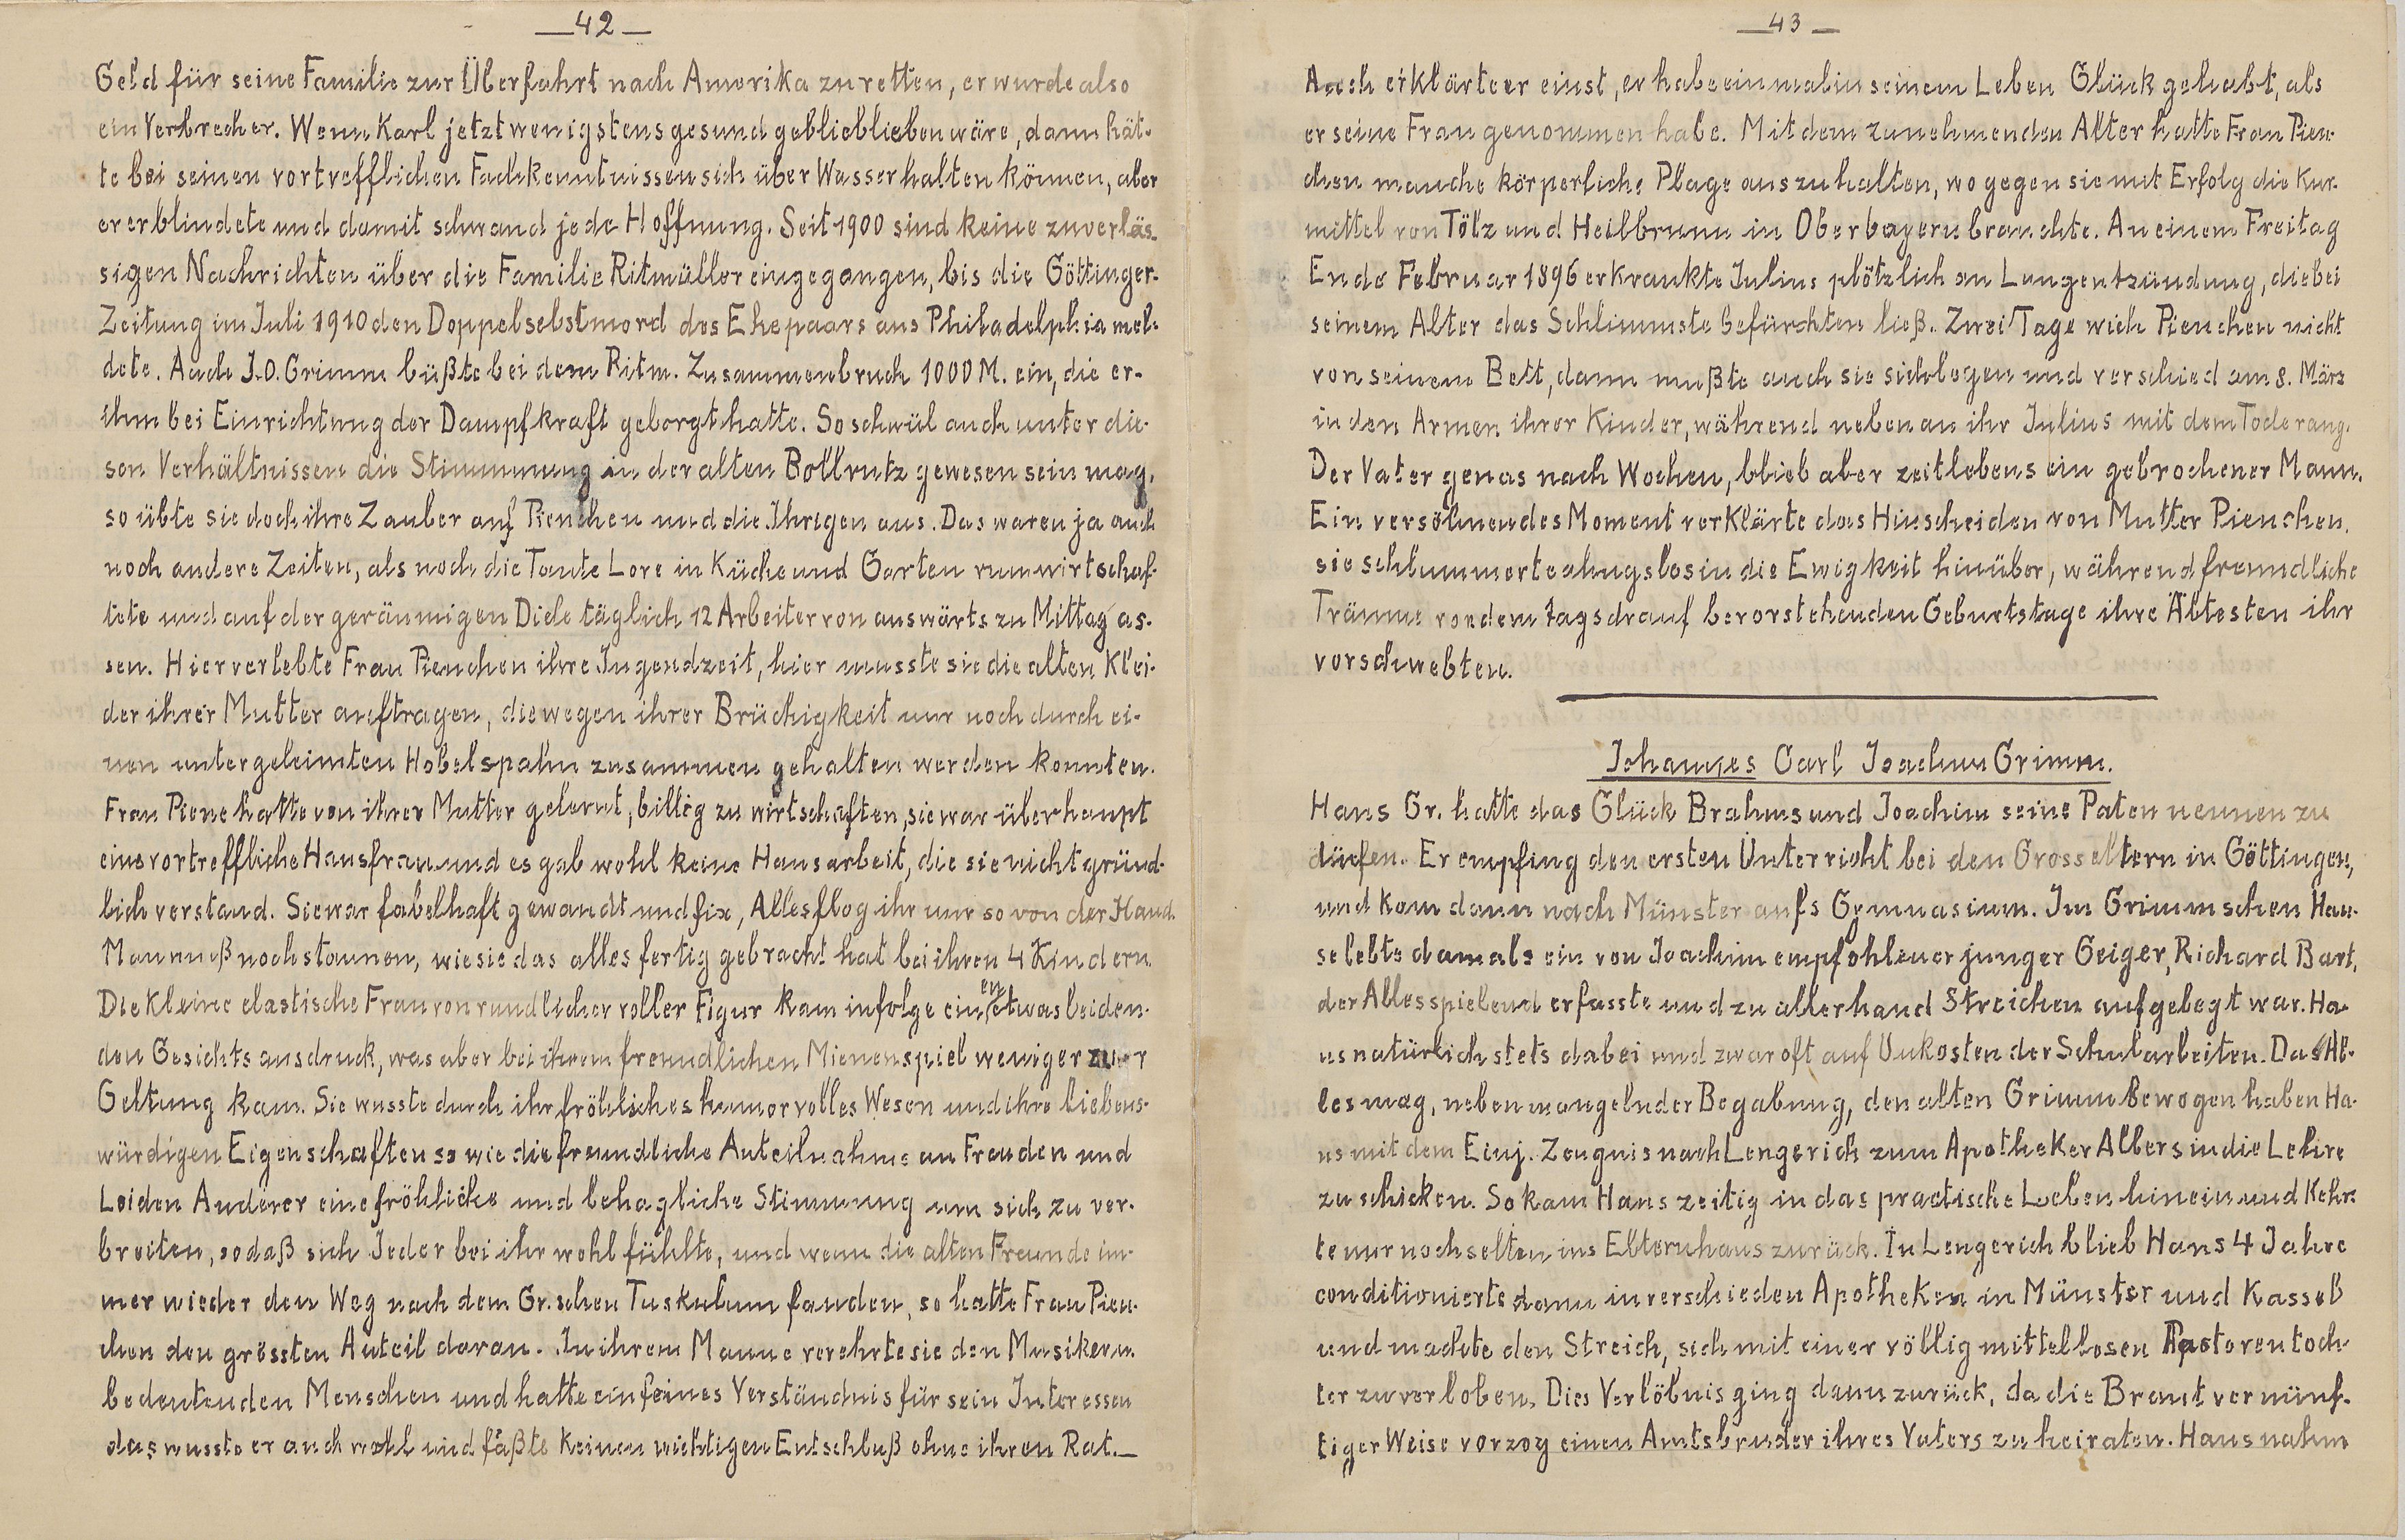 — 42 —
Geld für seine Familie zur Überfahrt nach Amerika zu retten, er wurde also
ein Verbrecher. Wenn Karl jetzt wenigstens gesund gebliebliben wäre, dann hät-
te bei seinen vortrefflichen Fachkenntnissen sich über Wasser halten können, aber
er erblindete und damit schwand jede Hoffnung. Seit 1900 sind keine zuverläs-
sigen Nachrichten über die Familie Ritmüller eingegangen, bis die Göttinger-
Zeitung im Juli 1910 den Doppelselbstmord des Ehepaars aus Philadelphia mel-
dete. Auch J.O. Grimm büßte bei dem Ritm. Zusammenbruch 1000 M. ein, die er-
ihm bei Einrichtung der Dampfkraft geborgt hatte. So schwül auch unter die-
sen Verhältnissen die Stimmung in der alten Bollrutz gewesen sein mag,
so übte sie doch ihre Zauber auf Pienchen und die Ihrigen aus. Das waren ja auch
noch andere Zeiten, als noch die Tante Lore in Küche und Garten rumwirtschaf-
tete und auf der geräumigen Diele täglich 12 Arbeiter von auswärts zu Mittag as-
sen. Hier verlebte Frau Pienchen ihre Jugendzeit, hier musste sie die alten Klei-
der ihrer Mutter auftragen, die wegen ihrer Brüchigkeit nur noch durch ei-
nen untergeleimten Hobelspahn zusammen gehalten werden konnten.
Frau Piene hatte von ihrer Mutter gelernt, billig zu wirtschaften, sie war überhaupt
eine vortreffliche Hausfrau und es gab wohl keine Hausarbeit, die sie nicht gründ-
lich verstand. Sie war fabelhaft gewandt und fix, Alles flog ihr nur so von der Hand.
Man muß noch staunen, wie sie das alles fertig gebracht hat bei ihren 4 Kindern.
Die kleine elastische Frau von rundlicher voller Figur kam infolge einen etwas leiden-
den Gesichtsausdruck, was aber bei ihrem freundlichen Mienenspiel weniger zur
Geltung kam. Sie wusste durch ihr fröhliches humorvolles Wesen und ihre liebens-
würdigen Eigenschaften so wie die freundliche Anteilnahme an Freuden und
Leiden Anderer eine fröhliche und behagliche Stimmung um sich zu ver-
breiten, sodaß sich Jeder bei ihr wohl fühlte, und wenn die alten Freunde im-
mer wieder den Weg nach dem Gr.schen Tuskulum fanden, so hatte Frau Pien-
chen den grössten Anteil daran. In ihrem Manne verehrte sie den Musiker u.
bedeutenden Menschen und hatte ein feines Verständnis für sein Interessen
das wusste er auch wohl und faßte keinen wichtigen Entschluß ohne ihren Rat. —
— 43 —
Auch erklärte er einst, er habe einmal in seinem Leben Glück gehabt, als
er seine Frau genommen habe. Mit dem zunehmenden Alter hatte Frau Pien-
chen manche körperliche Plage auszuhalten, wo gegen sie mit Erfolg die Kur-
mittel von Tölz und Heilbrunn in Oberbayern brauchte. An einem Freitag
Ende Februar 1896 erkrankte Julius plötzlich an Lungentzündung, die bei
seinem Alter das Schlimmste befürchten ließ. Zwei Tage wich Pienchen nicht
von seinem Bett, dann mußte auch sie sich legen und verschied am 8. März
in den Armen ihrer Kinder, während nebenan ihr Julius mit dem Tode rang.
Der Vater genas nach Wochen, blieb aber zeitlebens ein gebrochener Mann.
Ein versöhnendes Moment verklärte das Hinscheiden von Mutter Pienchen,
sie schlummerte ahngslos in die Ewigkeit hinüber, während freundliche
Träume von dem tags drauf bevorstehenden Geburtstage ihre Ältesten ihr
vorschwebten.
Johannes Carl Joachim Grimm.
Hans Gr. hatte das Glück Brahms und Joachim seine Paten nennen zu
dürfen. Er empfing den ersten Unterricht bei den Grosseltern in Göttingen,
und kam dann nach Münster aufs Gymnasium. Im Grimmschen Hau-
se lebte damals ein von Joachim empfohlener junger Geiger, Richard Bart,
der Alles spielend erfasste und zu allerhand Streichen aufgelegt war. Ha-
ns natürlich stets dabei und zwar oft auf Unkosten der Schularbeiten. Das Al-
les mag, neben mangelnder Begabung, den alten Grimm bewogen haben Ha-
ns mit dem Einj. Zeugnis nach Lengerich zum Apotheker Albers in die Lehre
zu schicken. So kam Hans zeitig in das practische Leben hinein und kehr-
te nur noch selten ins Elternhaus zurück. In Lengerich blieb Hans 4 Jahre
conditionierte dann in verschieden Apotheken in Münster und Kassel
und machte den Streich, sich mit einer völlig mittellosen Pastorentoch-
ter zu verloben. Dies Verlöbnis ging dann zurück, da die Braut vernünf-
tiger Weise vorzog einen Amtsbruder ihres Vaters zu heiraten. Hans nahm